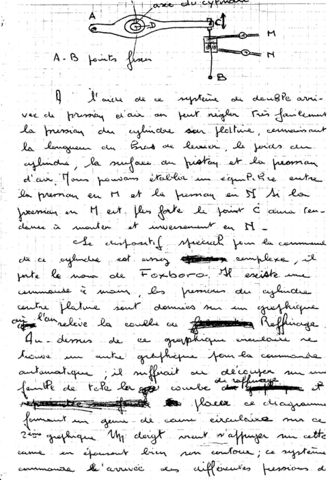 axe du cylindre
A
D
C
M
N
B
A-B points fixes
A l'aide de ce système de double arri-
vée de pression d'air on peut régler très facilement
la pression du cylindre sur platine, connaissant
la longueur du bras de levier, le poids du
cylindre, la surface du piston et la pression
d'air. Nous pouvons établir un équilibre entre
la pression en M et la pression en N Si la
pression en M est plus forte le point C aura ten-
dance à monter et inversement en N.
Le dispositif spécial pour la commande
de ce cylindre est assez complexe, il
porte le nom de Foxboro. Il existe une
commande à main, les pressions du cylindre
contre platine sont données sur un graphique
où l'on relève la courbe de Raffinage.
Au-dessus de ce graphique circulaire se
trouve un autre graphique pour la commande
automatique; il suffirait de découper sur une
feuille de tôle la courbe de raffinage et
placer ce diagramme
formant un genre de came circulaire sur ce
2ème graphique Un doigt vient s'appuyer sur cette
came en épousant bien son contour; ce système
commande l'arrivée des différentes pressions d